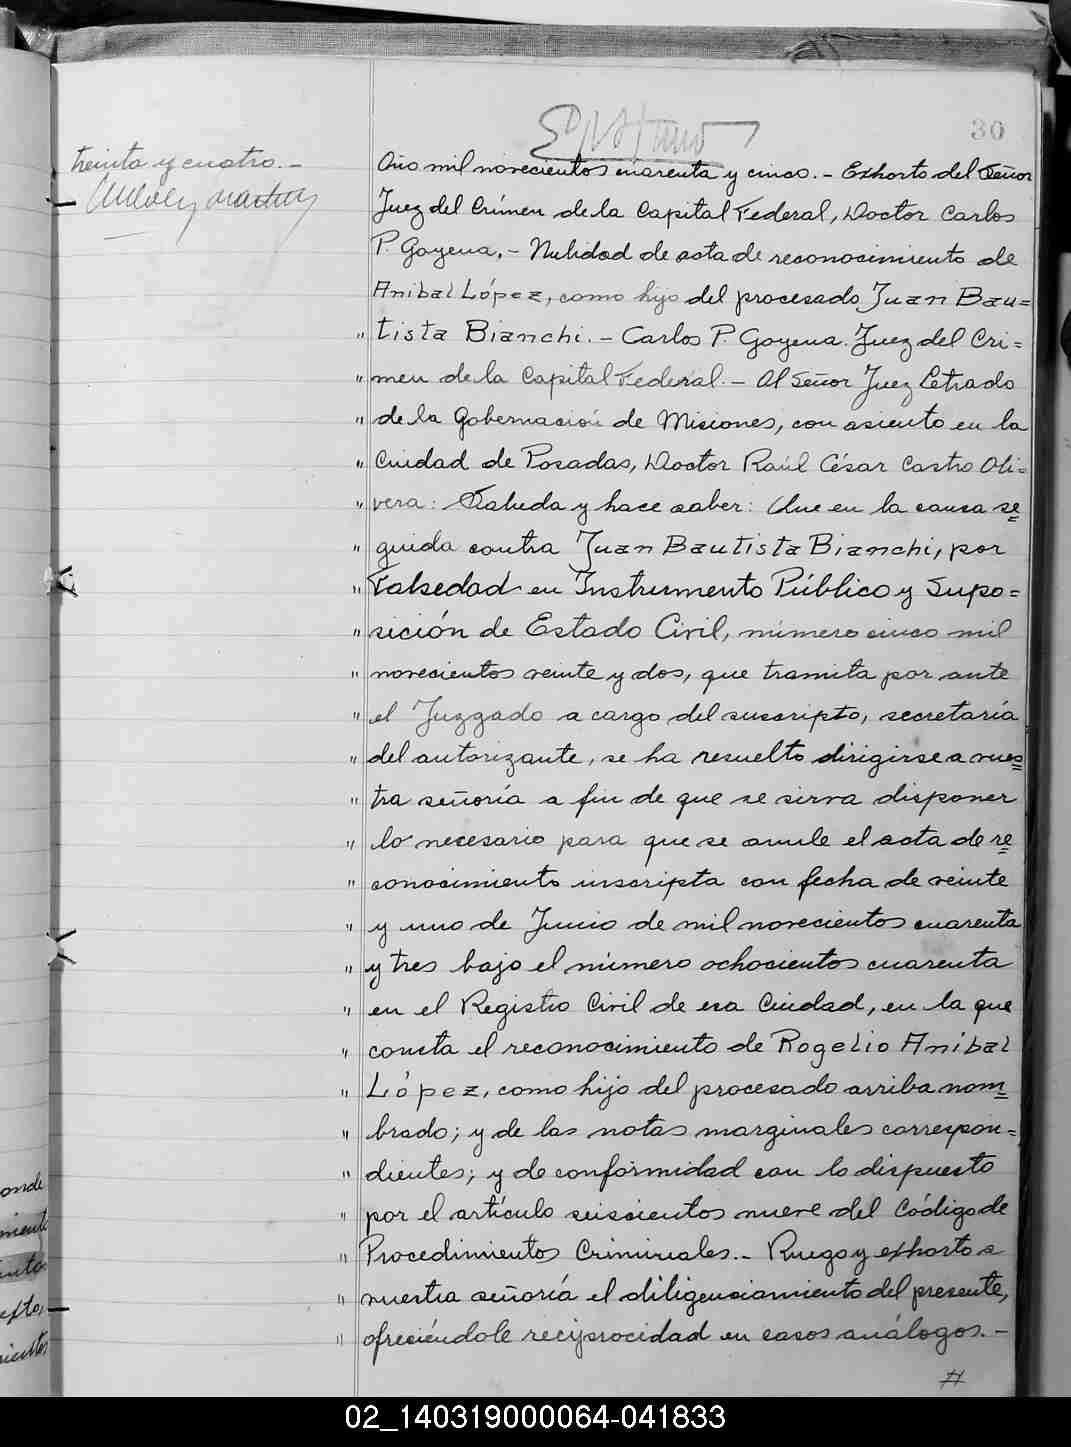 30
treinta y cuatro.-
Año mil novecientos cuarenta y cinco.- Exhorto del Señor
Juez del Crímen de la Capital Federal, Doctor Carlos
P. Goyena.- Nulidad de acta de reconocimiento de
Anibal López, como hijo del procesado Juan Bau=
" tista Bianchi.- Carlos P. Goyena. Juez del Cri=
" men de la Capital Federal.- Al Señor Juez Letrado
" de la Gobernación de Misiones, con asiento en la
" Ciudad de Posadas, Doctor Raúl César Castro Oli=
" vera: Saluda y hace saber: Que en la causa se=
" guida contra Juan Bautista Bianchi, por
" Falsedad en Instrumento Público y Supo=
" sición de Estado Civil, número cinco mil
" novecientos veinte y dos, que tramita por ante
" el Juzgado a cargo del suscripto, secretaría
" del autorizante, se ha resuelto dirigirse a vues=
" tra señoría a fin de que se sirva disponer
" lo necesario para que se anule el acta de re=
" conocimiento inscripta con fecha de veinte
" y uno de Junio de mil novecientos cuarenta
" y tres bajo el número ochocientos cuarenta
" en el Registro Civil de esa Ciudad, en la que
" consta el reconocimiento de Rogelio Aníbal
" López, como hijo del procesado arriba nom=
" brado; y de las notas marginales correspon=
" dientes; y de conformidad con lo dispuesto
" por el artículo seiscientos nueve del Código de
" Procedimientos Criminales.- Ruego y exhorto a
" vuestra señoría el diligenciamiento del presente,
" ofreciéndole reciprocidad en casos análogos.-
02_140319000064-041833